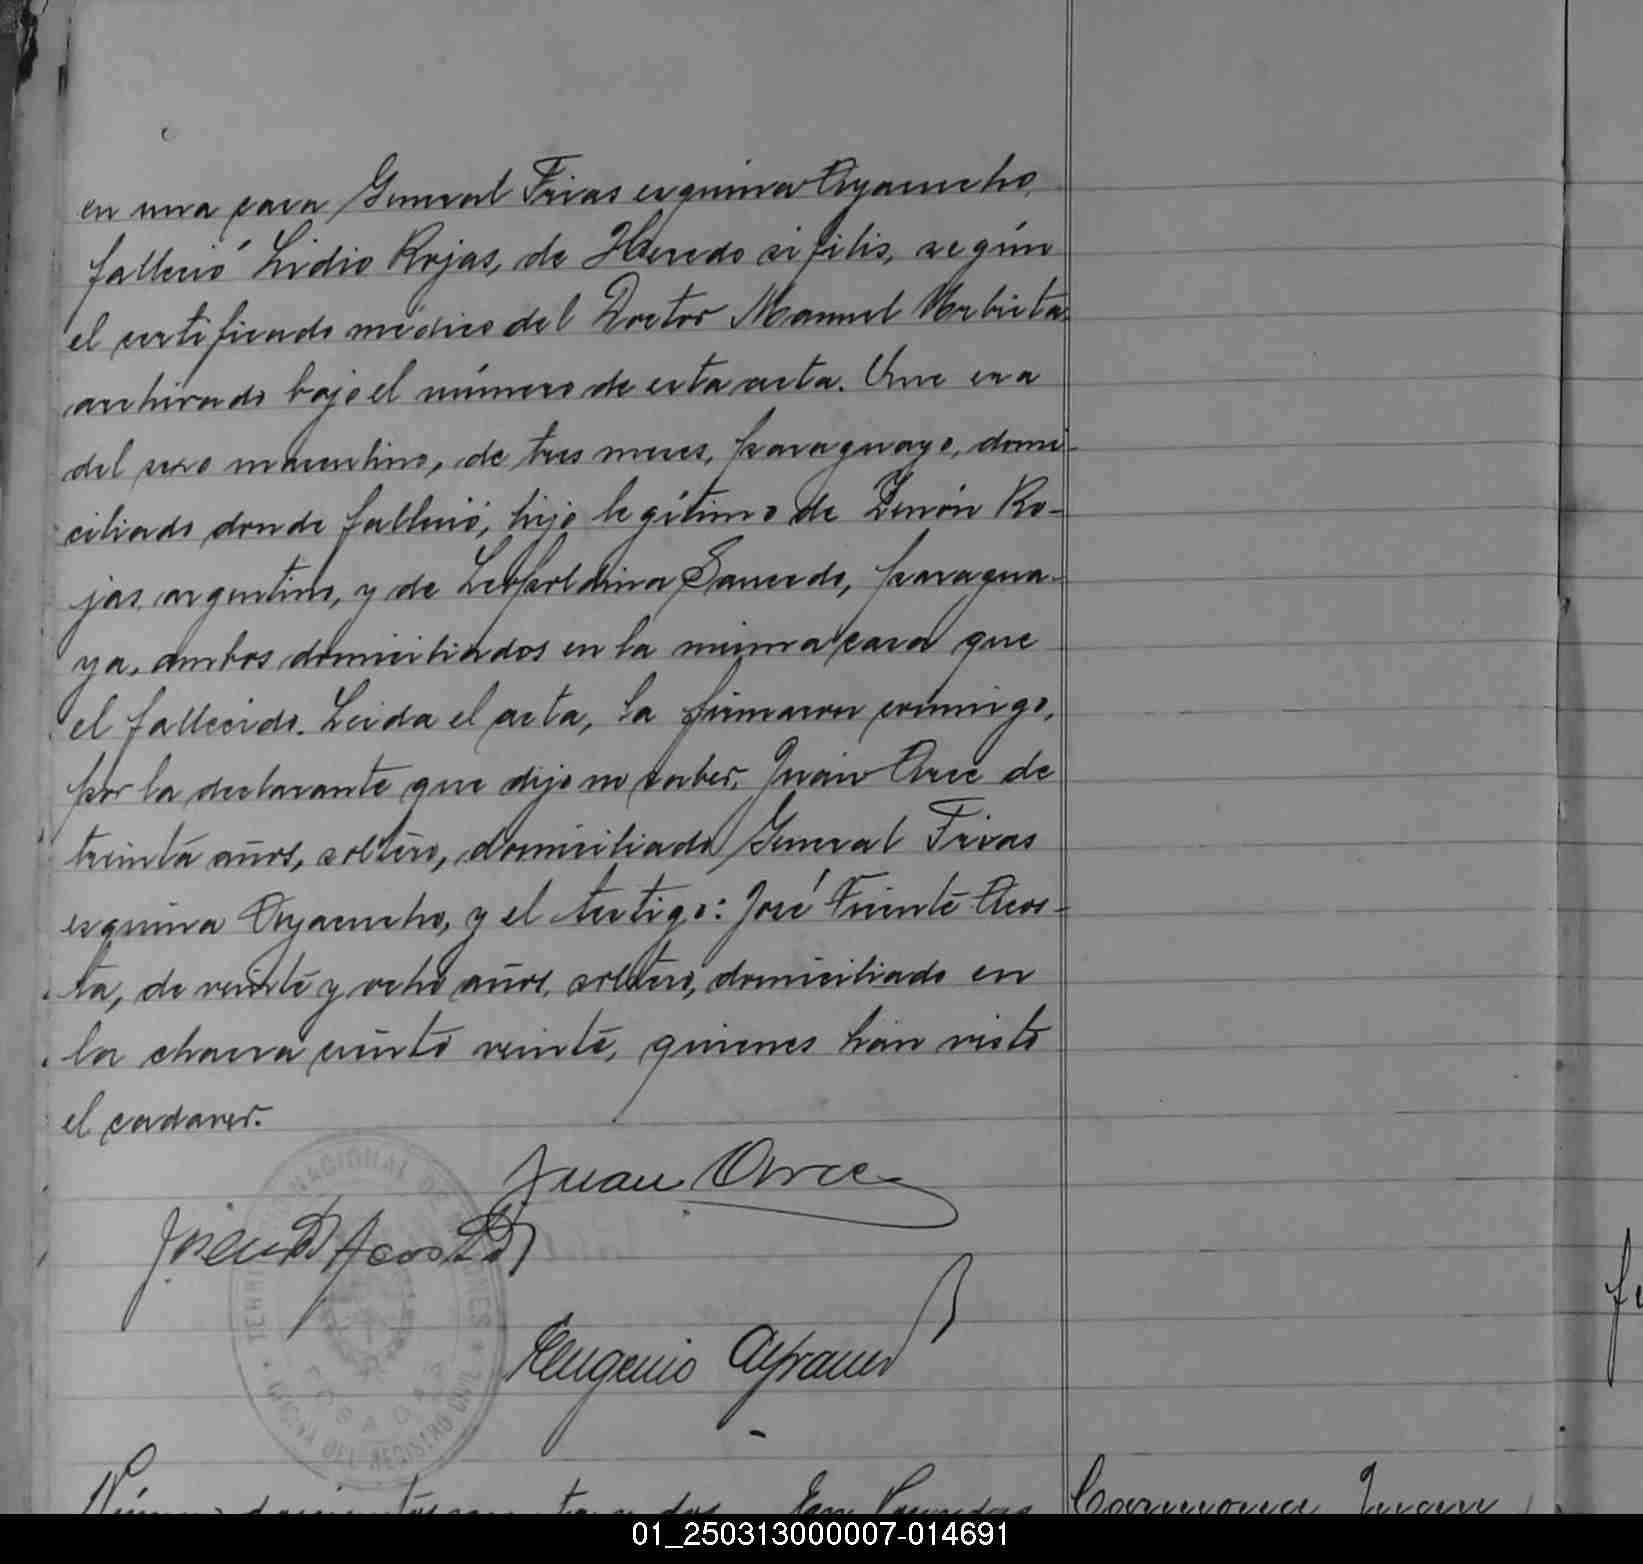 en una casa General Frias esquina Ayacucho,
falleció Lidio Rojas, de Heredo sifilis, según
el certificado médico del Doctor Manuel Urbieta
archivado bajo el número de esta acta. Que era
del sexo masculino, de tres meses, paraguayo, domi-
ciliado donde falleció, hijo legítimo de Zenón Ro-
jas, argentino, y de Leopoldina Saucedo, paragua-
ya, ambos domiciliados en la misma casa que
el fallecido. Leida el acta, la firmaron conmigo,
por la declarante que dijo no saber, Juan Arce de
treinta años, soltero, domiciliado General Frias
esquina Ayacucho, y el testigo: José Acos-
ta, de veinte y ocho años, soltero, domiciliado en
la chacra ciento veinte, quienes han visto
el cadaver.
Juan Arce
Acosta
Eugenio
TERRITORIO NACIONAL DE MISIONES
POSADAS
OFICINA DEL REGISTRO CIVIL
Número doscientos y dos. En Posadas
Carmona Juan
01_250313000007-014691